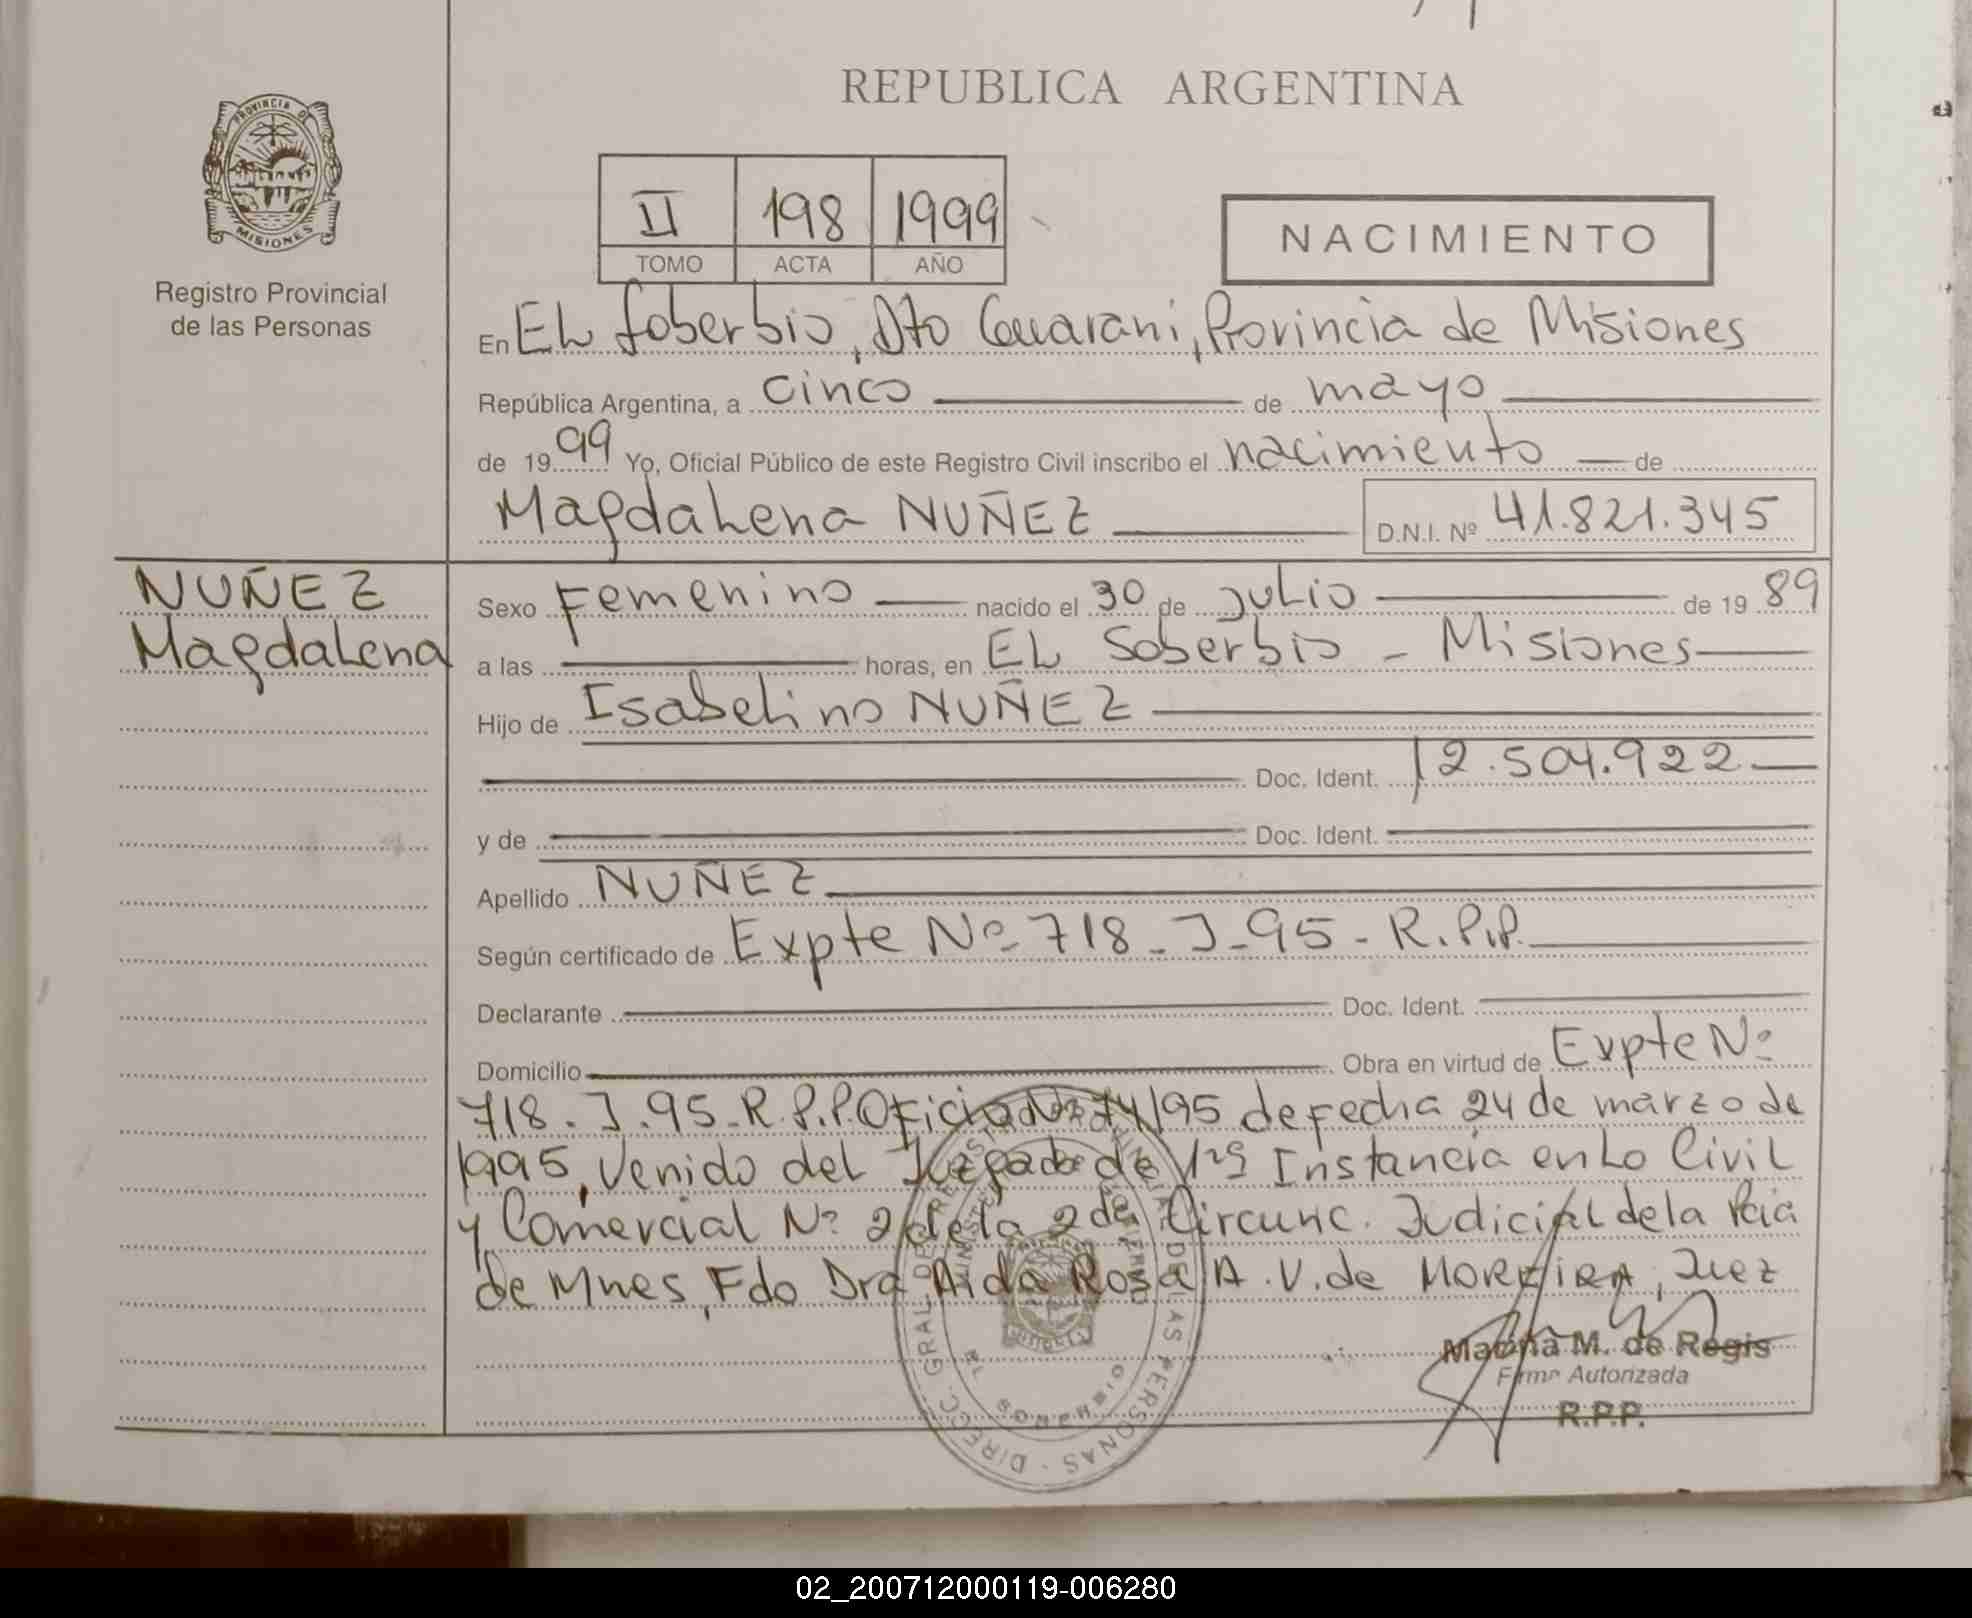 REPUBLICA ARGENTINA
PROVINCIA DE
MISIONES
Registro Provincial
de las Personas
II 198 1999
TOMO ACTA AÑO
NACIMIENTO
En EL Soberbio, Dto Guarani, Provincia de Misiones
República Argentina, a cinco de mayo
de 1999 Yo, Oficial Público de este Registro Civil inscribo el nacimiento de
Magdalena NUÑEZ D.N.I. Nº 41.821.345
NUÑEZ
Magdalena
Sexo Femenino nacido el 30 de Julio de 19 89
a las horas, en EL Soberbio - Misiones
Hijo de Isabelino NUÑEZ
Doc. Ident. 12.504.922
y de Doc. Ident.
Apellido NUÑEZ
Según certificado de Expte Nº 718-J-95-R.P.P.
Declarante Doc. Ident.
Domicilio Obra en virtud de Expte Nº
718-J-95-R.P.P. Oficio Nº 74/95 de fecha 24 de marzo de
1995, Venido del Juzgado de 1ra Instancia en Lo Civil
y Comercial Nº 2 de la 2da Circunc. Judicial de la Pcia
de Mnes, Fdo Dra Aida Rosa A. V. de MOREIRA, Juez
M. de Regis
Firma Autorizada
R.P.P.
DIRECC. GRAL. DE REGISTRO PROVINCIAL DE LAS PERSONAS
EL SOBERBIO
02_200712000119-006280